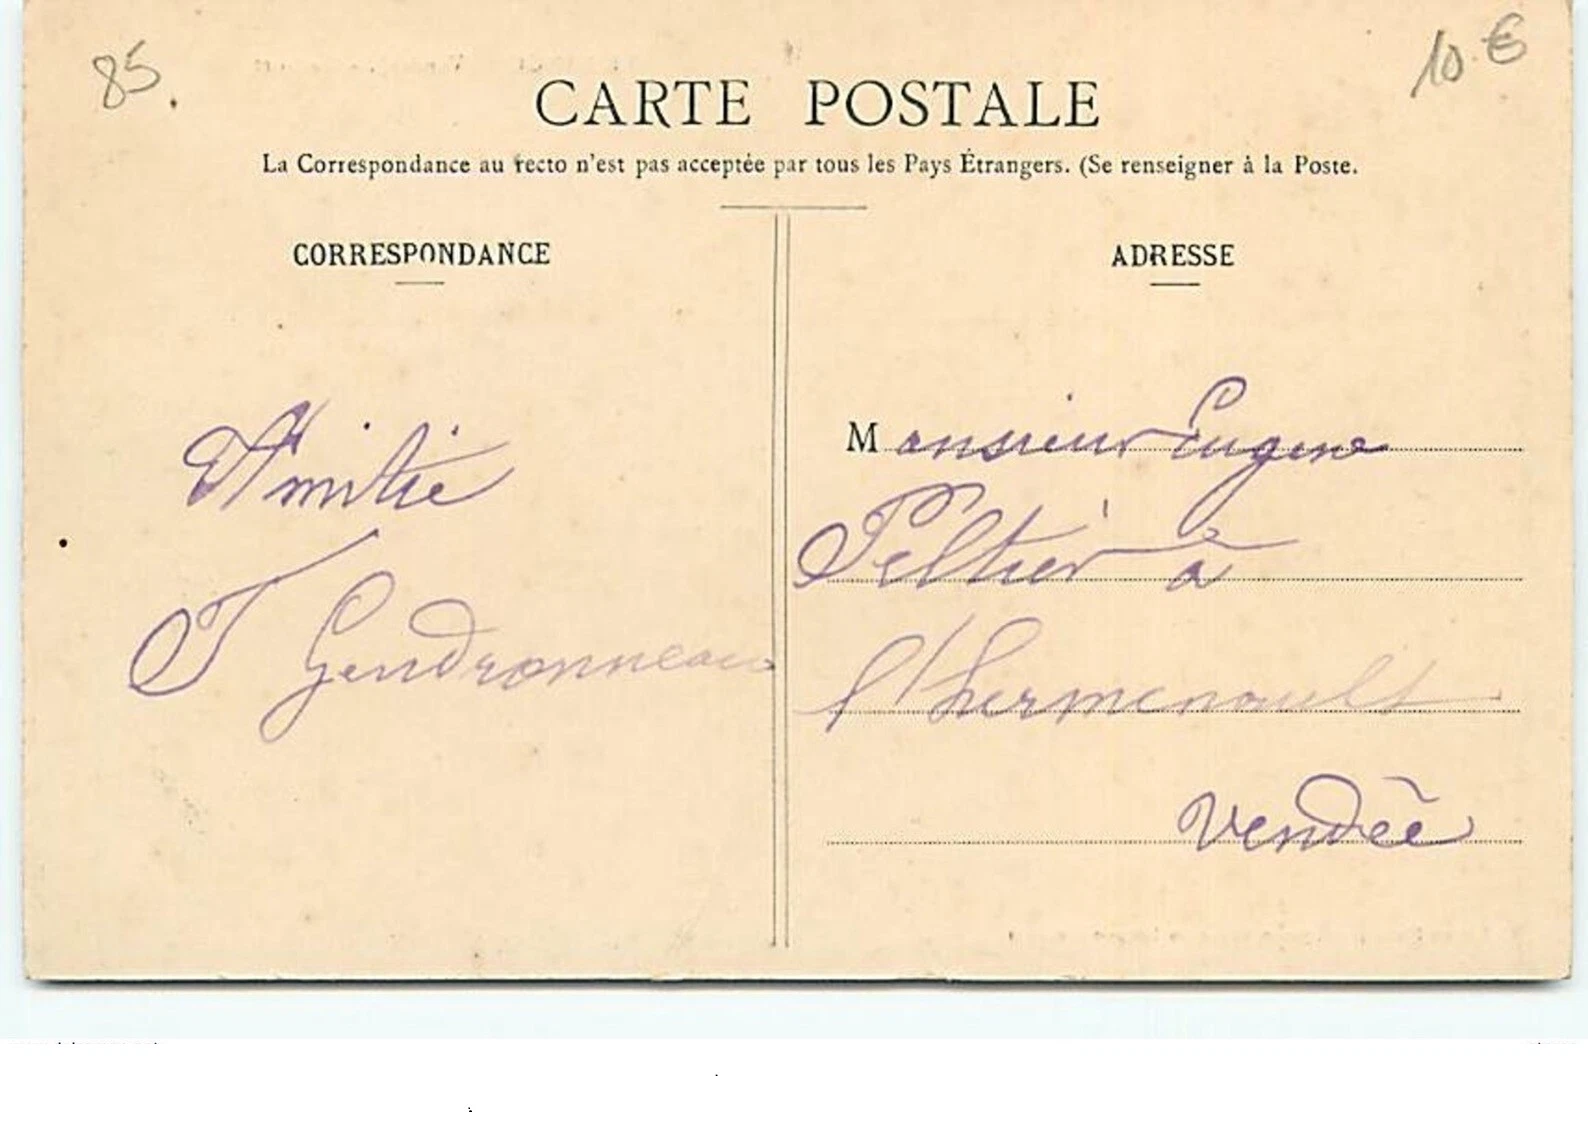 85.
10 €
CARTE POSTALE
La Correspondance au recto n'est pas acceptée par tous les Pays Étrangers. (Se renseigner à la Poste.
CORRESPONDANCE
Amitié
J Gendronneau
ADRESSE
Monsieur Eugene
Peltier à
l'hermenault
Vendée